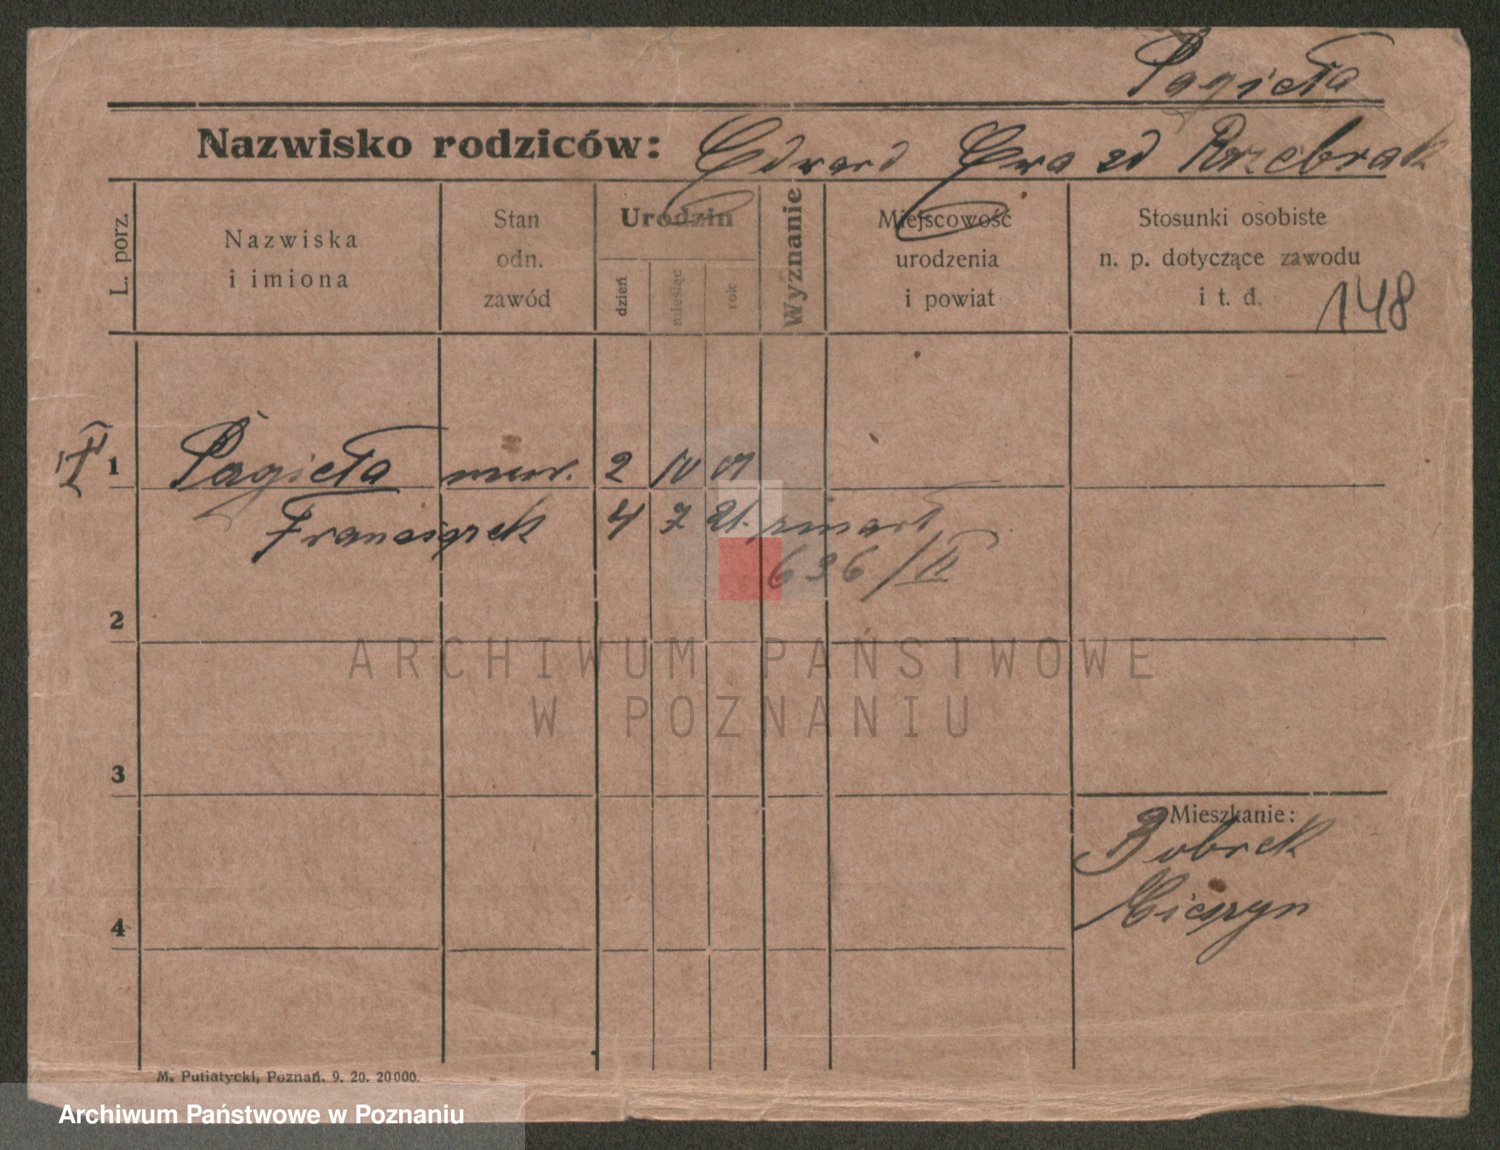 Pagieła
Nazwisko rodziców: Edward Ewa zd Rozebrak
L. porz.
Nazwiska
i imiona
Stan
odn.
zawód
Urodzin
dzień
miesiąc
rok
Wyznanie
Miejscowość
urodzenia
i powiat
Stosunki osobiste
n. p. dotyczące zawodu
i t. d.
148
1 Pagieła mur. 2 IV 01
Franciszek 4 7 21. zmarł
636/II
2
ARCHIWUM PAŃSTWOWE
W POZNANIU
3
Mieszkanie:
Bobrek
Cieszyn
4
M. Putiatycki, Poznań. 9. 20. 20000.
Archiwum Państwowe w Poznaniu